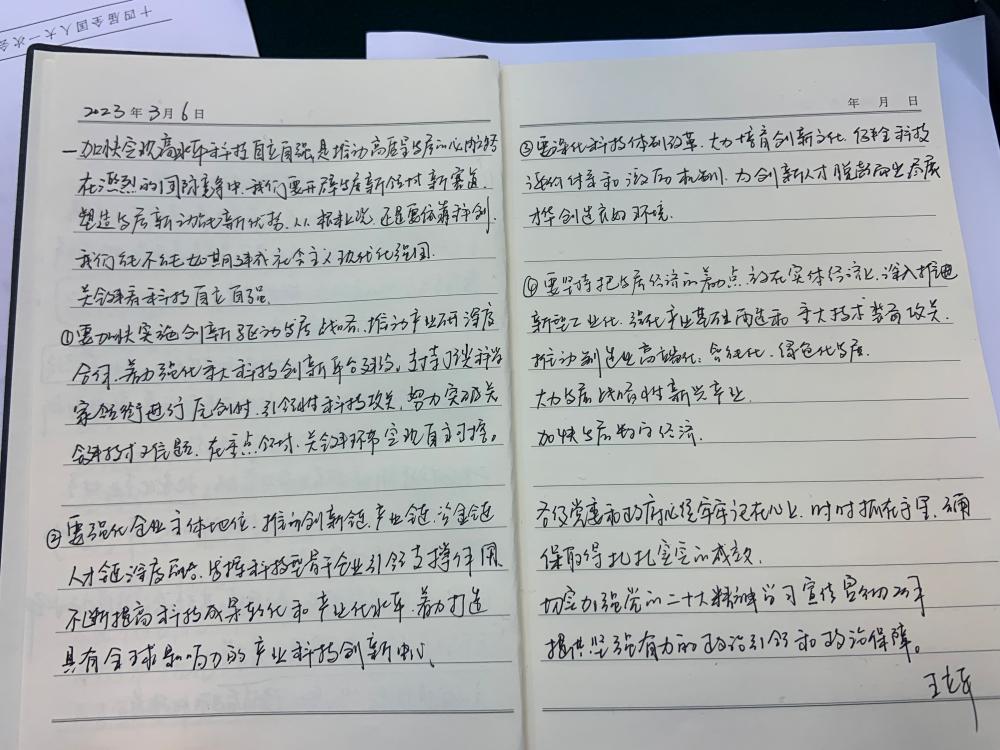 十四届全国人大一次会
2023年3月6日
一加快实现高水平科技自立自强,是推动高质量发展的必由之路
在激烈的国际竞争中,我们要开辟发展新领域新赛道、
塑造发展新动能新优势,从根本上说,还是要依靠科技创
我们能不能如期建成社会主义现代化强国.
关键看科技自立自强.
①要加快实施创新驱动发展战略、推动产学研深度
合作、着力强化重大科技创新平台建设,支持顶尖科学
家领衔进行原创性、引领性科技攻关,努力突破关
键核心技术难题,在重点领域、关键环节实现自主可控。
②要强化企业主体地位,推动创新链、产业链、资金链
人才链深度融合,发挥科技型骨干企业引领支撑作用
不断提高科技成果转化和产业化水平,着力打造
具有全球影响力的产业科技创新中心、
年 月 日
③要深化科技体制改革,大力培育创新文化,健全科技
评价体系和激励机制,为创新人才脱颖而出尽展
才华创造良好环境.
④要坚持把发展经济的着力点放在实体经济上,深入推进
新型工业化,强化产业基础再造和重大技术装备攻关,
推动制造业高端化、智能化、绿色化发展.
大力发展战略性新兴产业
加快发展数字经济.
各级党委和政府必须牢牢记在心上,时时抓在手里,确
保取得扎扎实实的成效.
切实加强党的二十大精神学习宣传贯彻
提供坚强有力的政治引领和政治保障。